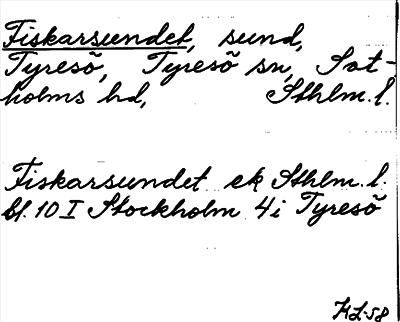 Fiskarsundet, sund,
Tyresö, Tyresö sn, Sot-
holms hd, Sthlm. l.
Fiskarsundet ek Sthlm. l.
bl. 10 I Stockholm 4i Tyresö
KL-58